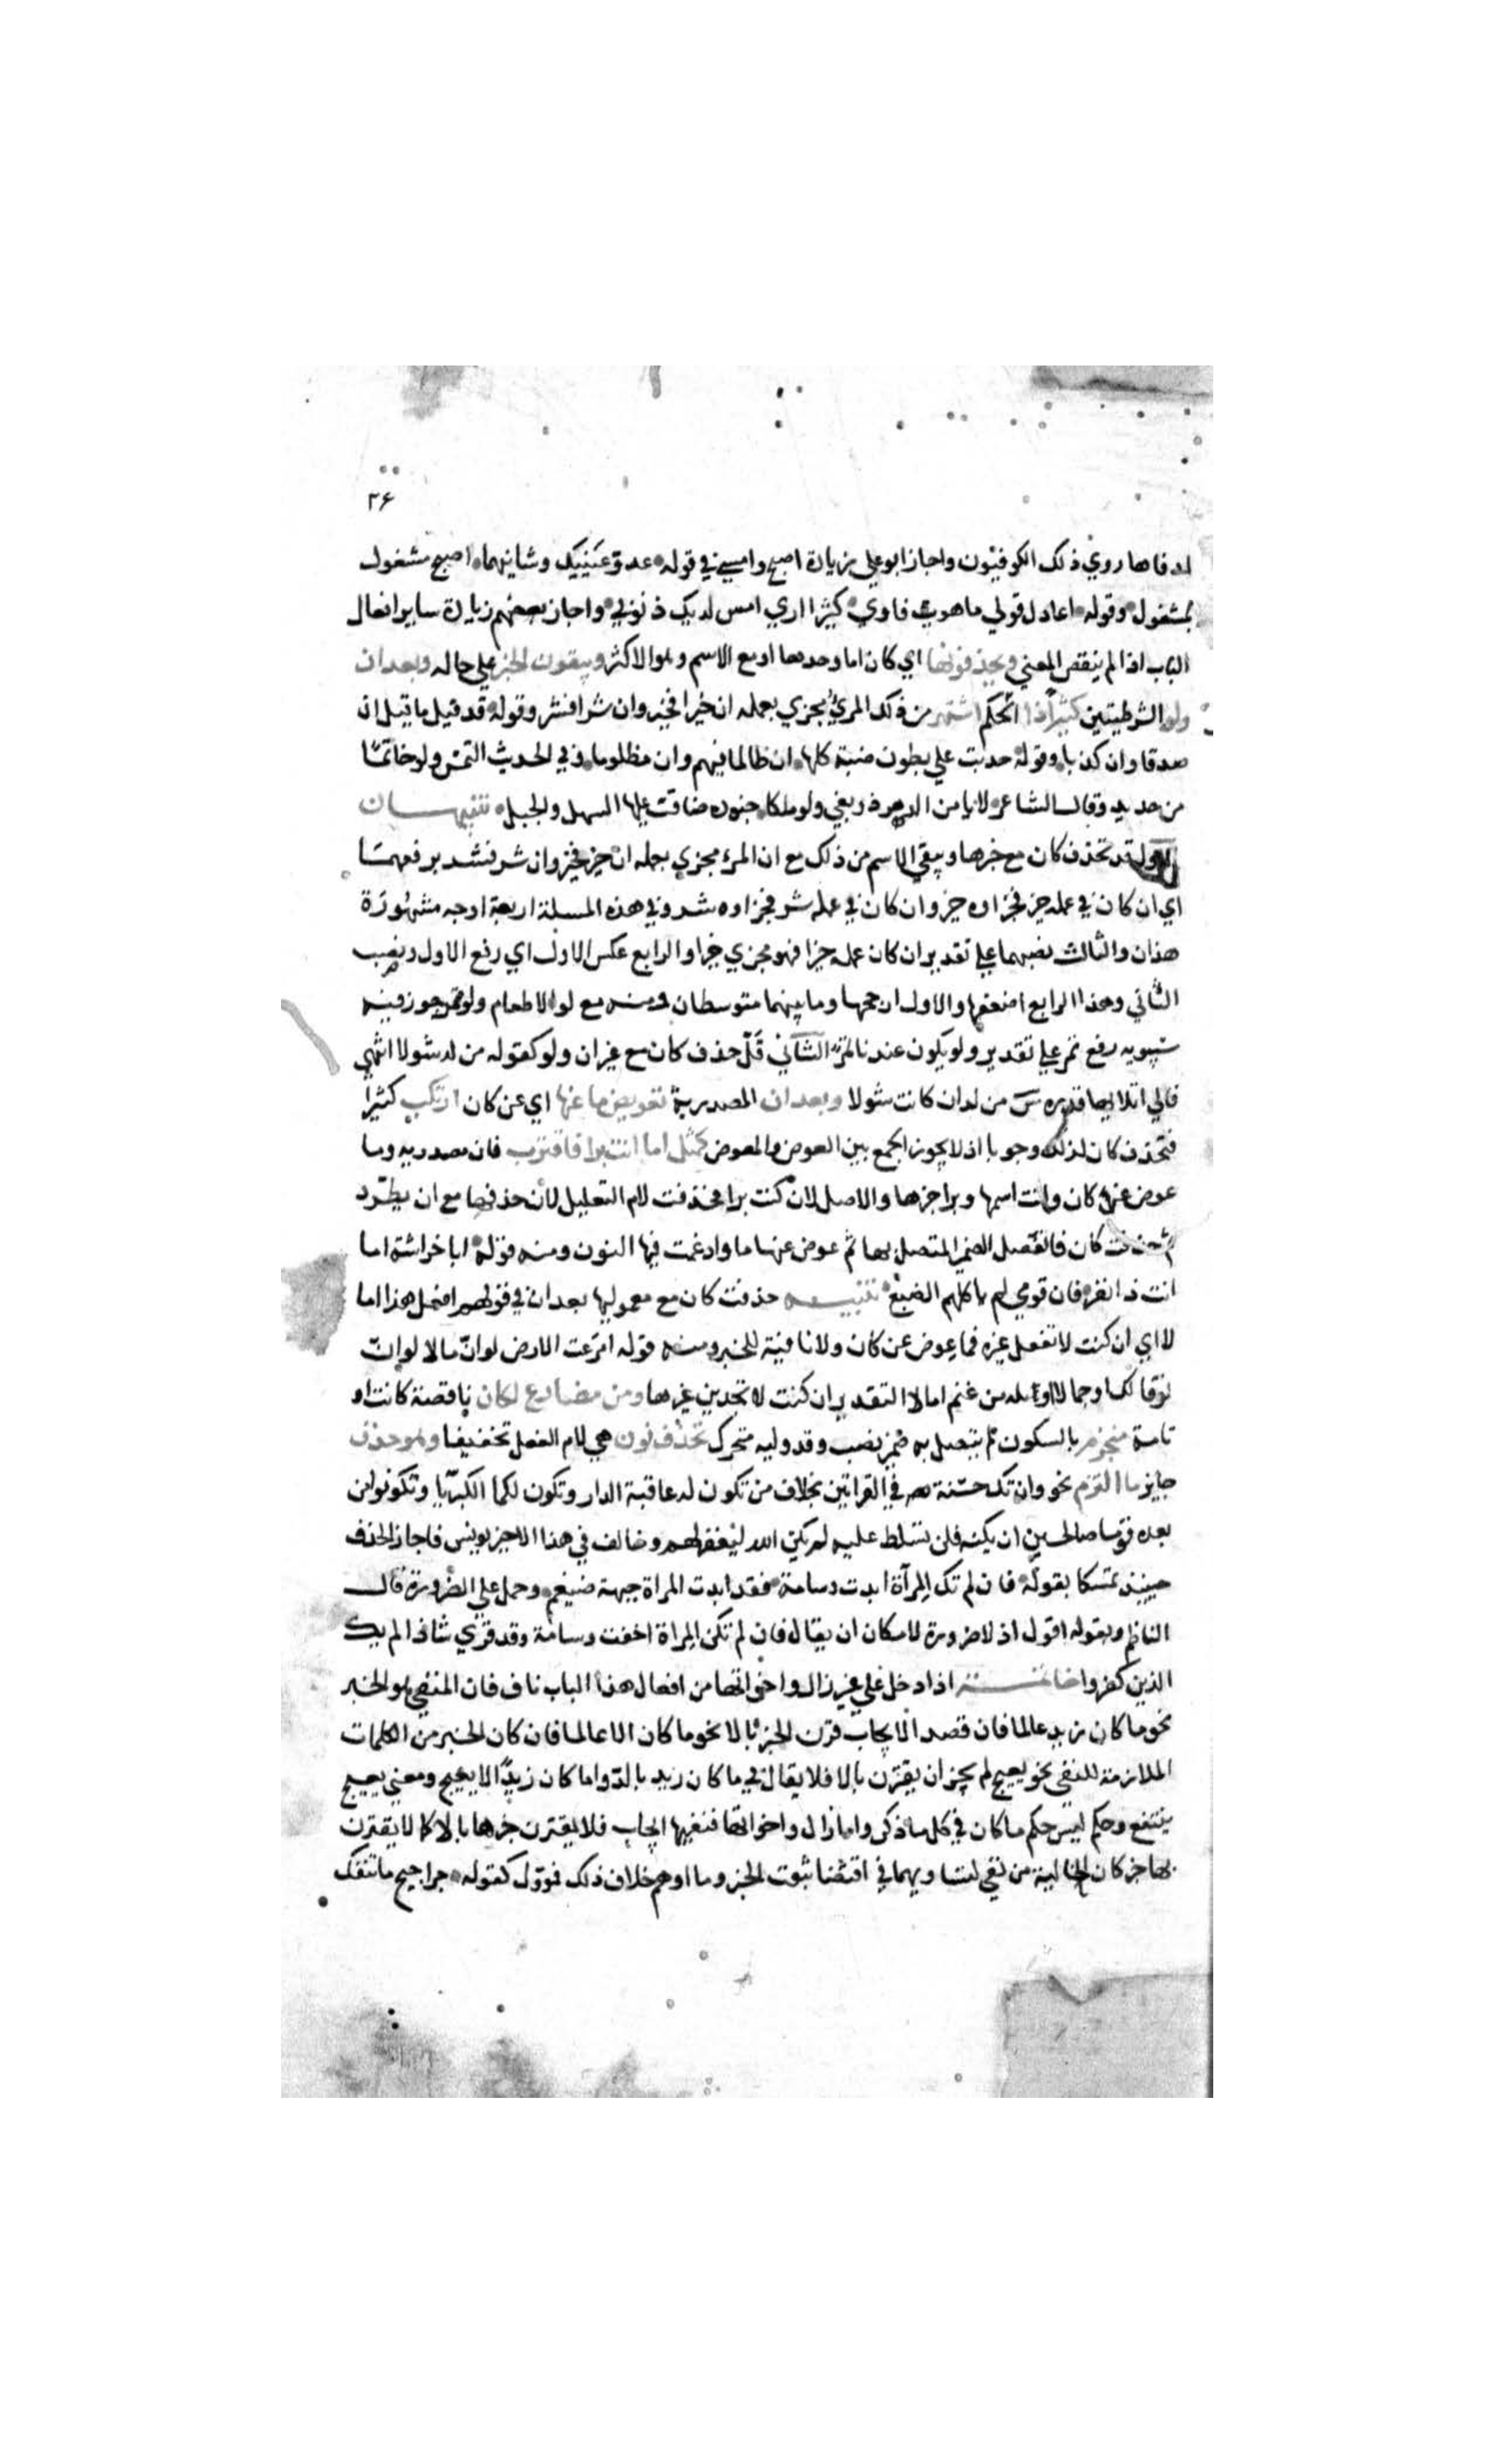 ٢۶
ادفاها روي ذلك الكوفيون واجاز ابو علي زيادة اصبح وامسي في قوله عدو عينيك وشانيهما اصبح مشغول
بمشغول وقوله اعاذل قولي ما هويت فاوبي كثيرا اري امس لديك ذنوبي واجاز بعضهم زيادة ساير افعال
الباب اذا لم ينقص المعني ويحذفونها اي كان اما وحدها او مع الاسم وهو الاكثر ويبقون الخبر علي حاله وبعد ان
ولو الشرطيتين كثيرا ذا الحكم اشتهر من ذلك المرئ مجزي بعمله ان خيرا فخير وان شرا فشر وقوله قد قيل ما قيل ان
صدقا وان كذبا وقوله حدبت علي بطون ضبة كلها ان ظالما فيهم وان مظلوما وفي الحديث التمس ولو خاتمًا
من حديد وقال الشاعر لا يامن الدهر ذو بغي ولو ملكا جنوده ضاقت عنها السهل والجبل تنبيهان
الاول قد تحذف كان مع خبرها ويبقي الاسم من ذلك مع ان المرء مجزي بعمله ان خير فخير وان شر فشر برفعهما
اي ان كان في عمله خير فجزاوه خير وان كان في عمله شر فجزاوه شر وفي هذه المسلة اربعة اوجه مشهورة
هذان والثالث نصبهما علي تقدير ان كان عمله خيرا فهو مجزي خيرا والرابع عكس الاول اي رفع الاول ونصب
الثاني وهذا الرابع اضعفها والاول ارجحها وما بينهما متوسطان ومنه مع لو الاطعام ولو تمر جوز فيه
سيبويه رفع تمر علي تقدير ولو يكون عندنا تمر الثاني قل حذف كان مع غير ان ولو كقوله من لد شولا
فالي اتلائها قدره س من لدان كانت شولا وبعد ان المصدرية تعويض ما عنها اي عن كان ارتكب كثيرا
فتحذف كان لذلك وجوبا اذ لا يجوز الجمع بين العوض والمعوض كمثل اما انت برا فاقترب فان مصدريه وما
عوض عن كان وانت اسمها وبرا خبرها والاصل لان كنت برا فحذفت لام التعليل لان حذفها مع ان يطرد
ثم حذفت كان فانفصل الضمير المتصل بها ثم عوض عنها ما وادغمت فيها النون ومنه قوله ابا خراشة اما
انت ذا نفر فان قومي لم ياكلهم الضبع تنبيه حذفت كان مع معموليها بعد ان في قولهم افعل هذا اما
لا اي ان كنت لا تفعل غيره فما عوض عن كان ولا نافية للخبر ومنه قوله امرعت الارض لو ان مالا لو ان
نوقا لك او جمالا او ثلة من غنم اما لا التقدير ان كنت لا تجدين غيرها ومن مضارع لكان ناقصة كانت او
تامة منجزم بالسكون لم يتصل به ضمير نصب وقد وليه متحرك تحذف نون هي لام الفعل تخفيفا وهو حذف
جايز ما التزم نحو وان تك حسنة في القراتين بخلاف من تكون له عاقبة الدار وتكون لكما الكبريا وتكونوا من
بعده قوما صالحين ان يكنه فلن تسلط عليه لم يكن الله ليغفر لهم وخالف في هذا الاخير يونس فاجاز الحذف
حينيذ تمسكا بقوله فان لم تك المرآة ابدت وسامة فقد ابدت المراة جبهة ضيغم وحمل علي الضرورة قال
الناظم وبقوله اقول اذ لا ضرورة لامكان ان يقال فان لم تكن المراة اخفت وسامة وقد قري شاذا لم يك
الذين كفروا خاتمة اذا دخل علي غير زال واخواتها من افعال هذا الباب ناف فان المنفي هو الخبر
نحو ما كان زيد عالما فان قصد الايجاب قرن الخبر بالا نحو ما كان الا عالما فان كان الخبر من الكلمات
الملازمة للنفي نحو يعيج لم يجز ان يقترن بالا فلا يقال في ما كان زيد يعيج بالدوا ما كان زيد الا يعيج ومعني يعيج
ينتفع وحكم ليس حكم ما كان في كل ما ذكر واما زال واخواتها فنفيها ايجاب فلا يقترن خبرها بالا كما لا يقترن
بها خبر كان الخالية من نفي لتساويهما في اقتضا ثبوت الخبر وما اوهم خلاف ذلك فموول كقوله حراجيج ما تنفك